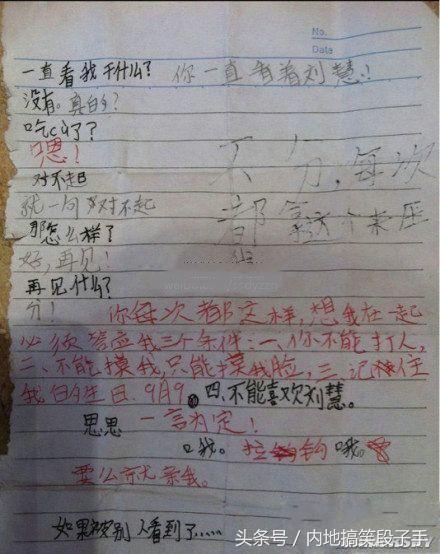 No.
Date
一直看我干什么? 你一直看着刘慧!
没有。真的?
吃c丩了?
嗯!
对不起
就一句对不起
那怎么样了?
好,再见!
再见什么?
分!
不分,每次
都拿这个来压
你每次都这样,想我在一起
必须答应我三个条件:一、你不能打人,
二、不能摸我,只能摸我脸,三、记住
我的生日.9月9。四、不能喜欢刘慧。
思思 一言为定!
口我。拉钩 哦。
要么就亲我。
如果被别人看到了……
头条号 / 内地搞笑段子手